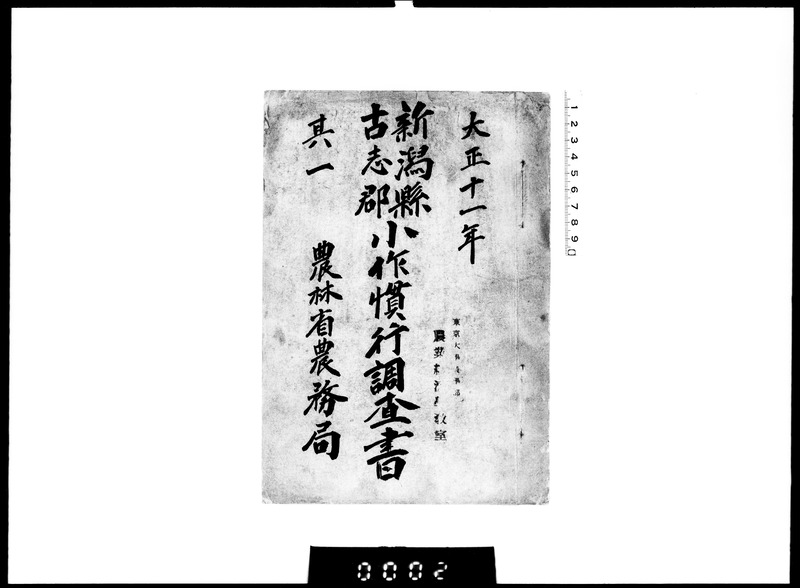 大正十一年
新潟縣
古志郡
小作慣行調査書
其一
農林省農務局
東京大
教室
1 2 3 4 5 6 7 8 9
0002